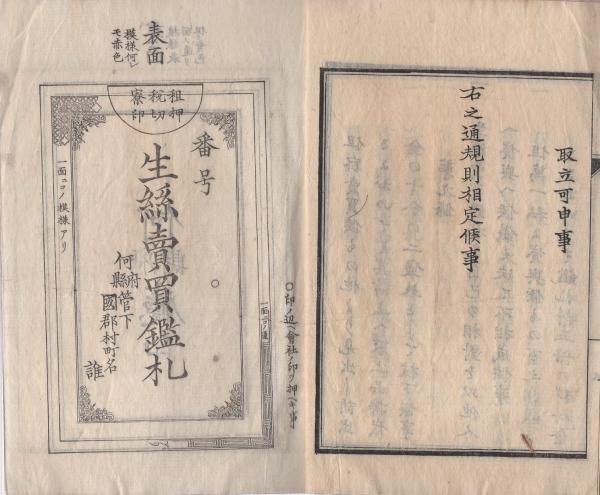 取立可申事
右之通規則相定候事
表面
模様何レ
モ赤色
租税寮
押切印
番号
生絲賣買鑑札
何府縣管下
國郡村町名
誰
一面ニコノ模様アリ
○印ノ辺ヘ會社ノ印ヲ押ヘキ事